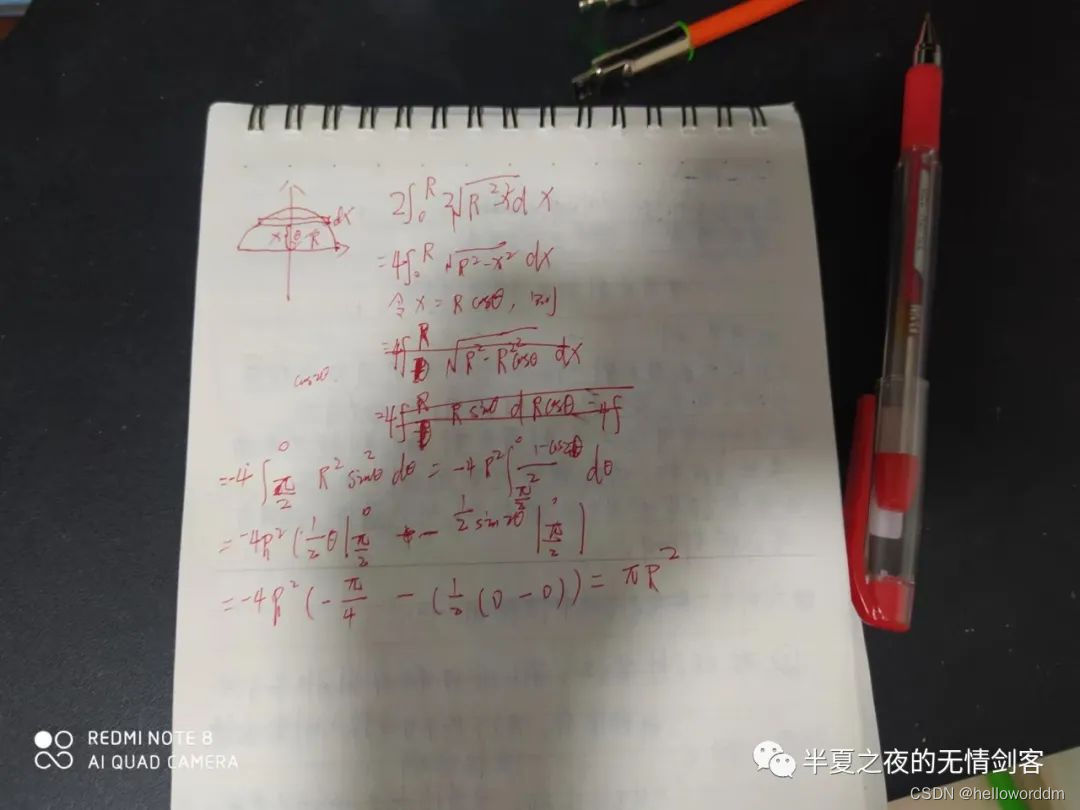 dx
x θ R
2∫₀ᴿ 2√(R²-x²) dx
=4∫₀ᴿ √(R²-x²) dx
令 x = R cosθ, 则
=4∫ R √(R²-R²cos²θ) dx
cos2θ
=4∫ R R sinθ d R cosθ = 4∫
=-4∫_{π/2}^0 R² sin²θ dθ = -4R²∫_{π/2}^0 (1-cos2θ)/2 dθ
=-4R²(1/2 θ|_{π/2}^0 - 1/2 sin2θ|_{π/2}^0]
=-4R²(-π/4 - (1/2(0-0)) = πR²
REDMI NOTE 8
AI QUAD CAMERA
半夏之夜的无情剑客
CSDN @helloworddm